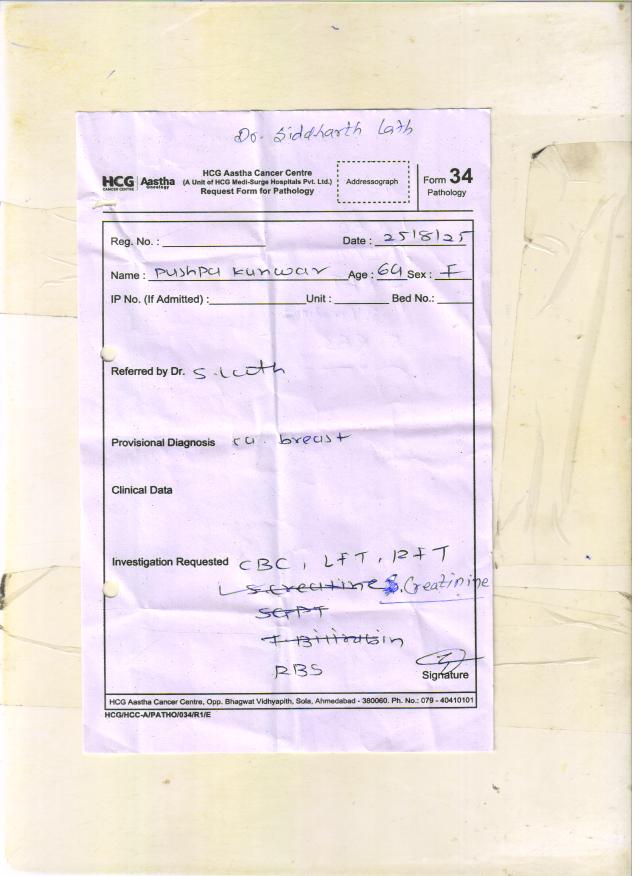 Dr. Siddharth Lath
HCG Aastha
CANCER CENTRE Oncology
HCG Aastha Cancer Centre
(A Unit of HCG Medi-Surge Hospitals Pvt. Ltd.)
Request Form for Pathology
Addressograph
Form 34
Pathology
Reg. No. : Date : 25/8/25
Name : Pushpa Kunwar Age : 64 Sex : F
IP No. (If Admitted) : Unit : Bed No.:
Referred by Dr. S. Lath
Provisional Diagnosis ca. breast
Clinical Data
Investigation Requested CBC, LFT, RFT
S. Creatine S. Creatinine
SGPT
T Bilirubin
RBS
Signature
HCG Aastha Cancer Centre, Opp. Bhagwat Vidhyapith, Sola, Ahmedabad - 380060. Ph. No.: 079 - 40410101
HCG/HCC-A/PATHO/034/R1/E